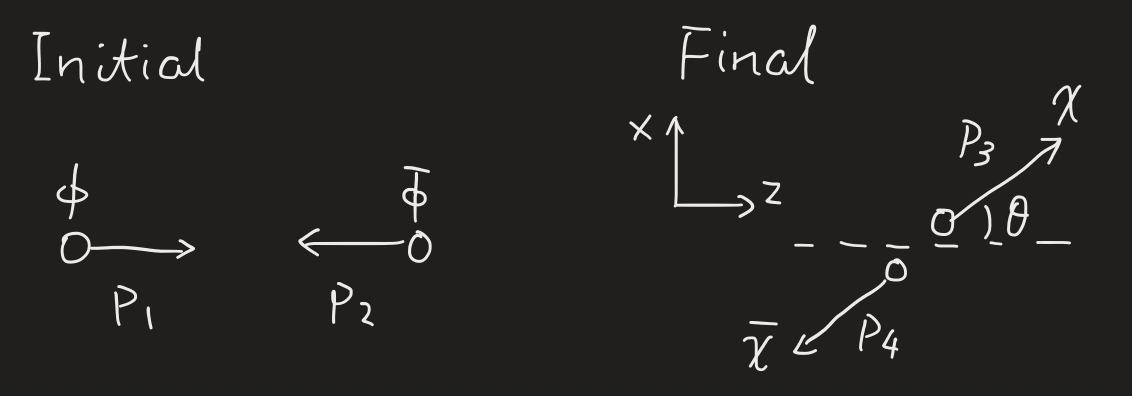 Initial
ϕ
ϕ̄
P₁
P₂
Final
x
z
χ
P₃
θ
χ̄
P₄